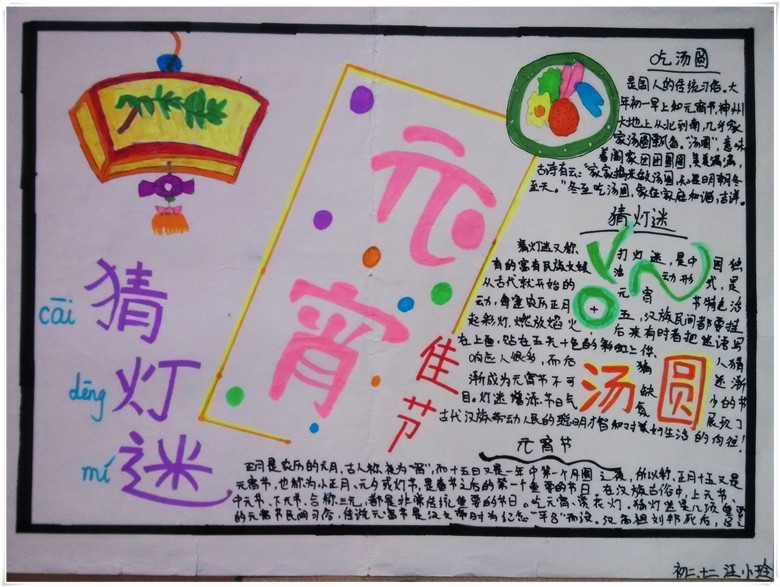 吃汤圆
是国人的传统习俗。大
年初一早上和元宵节,神州
大地上从北到南,几乎家
家汤圆飘香。"汤圆",意味
着阖家团团圆圆,美美满满,
古诗有云:"家家捣米做汤圆,知是明朝冬
至天。"冬至吃汤圆,象征家庭和谐,吉祥。
猜灯迷
猜灯迷又称 打灯迷,是中国独
有的富有民族文娱 活动形式,是
从古代就开始的 元宵节特色活
动,每逢农历正月 十五,汉族民间都要挂
起彩灯,燃放焰火 后来有好者把迷语写
在上面,贴在五光十色的彩灯上供人猜
元
宵
佳
节
cāi 猜
dēng 灯
mí 迷
汤圆
古代汉族劳动人民的聪明才智和对美好生活的向往!
元宵节
正月是农历的元月,古人称夜为"宵",而十五日又是一年中第一个月圆之夜,所以称正月十五又是
元宵节,也称为小正月、元夕或灯节,是春节之后的第一个重要的节日。在汉族古俗中,上元节、
中元节、下元节,合称三元,都是非常传统重要的节日。吃元宵、赏花灯、猜灯迷是
的元宵节民间习俗,传说元宵节是汉文帝时为纪念"平吕"而设。汉高祖刘邦死后,
初二、十二 汪小玲